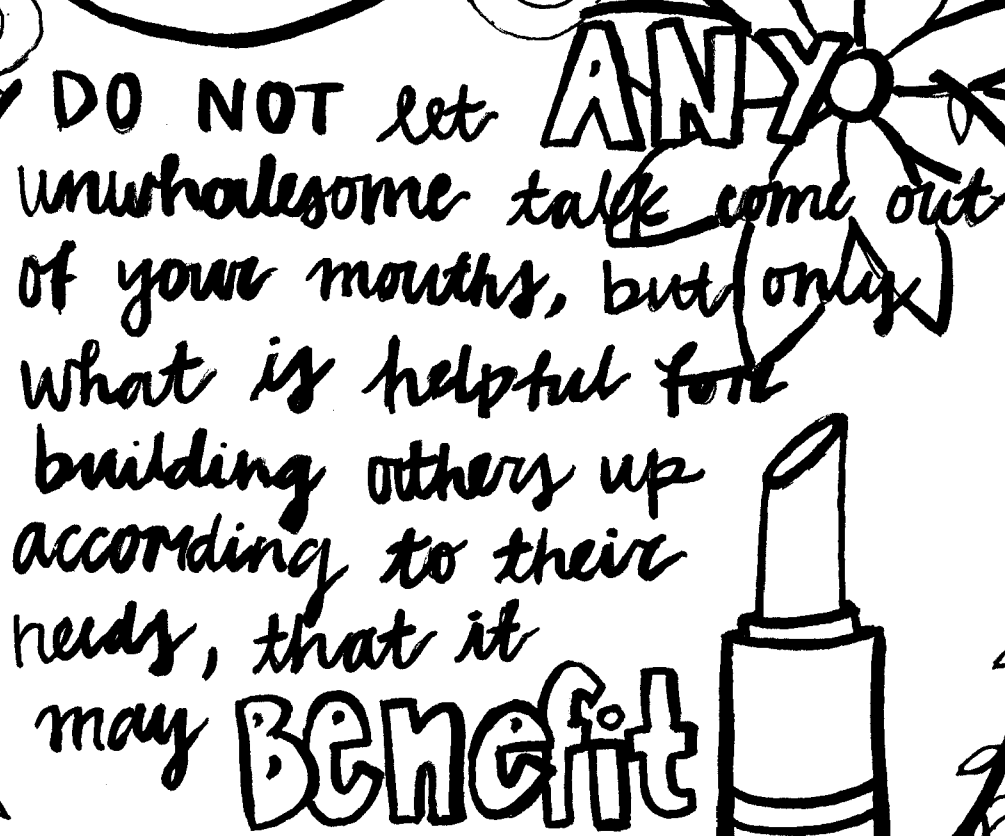 DO NOT let ANY
unwholesome talk come out
of your mouths, but only
what is helpful for
building others up
according to their
needs, that it
may Benefit